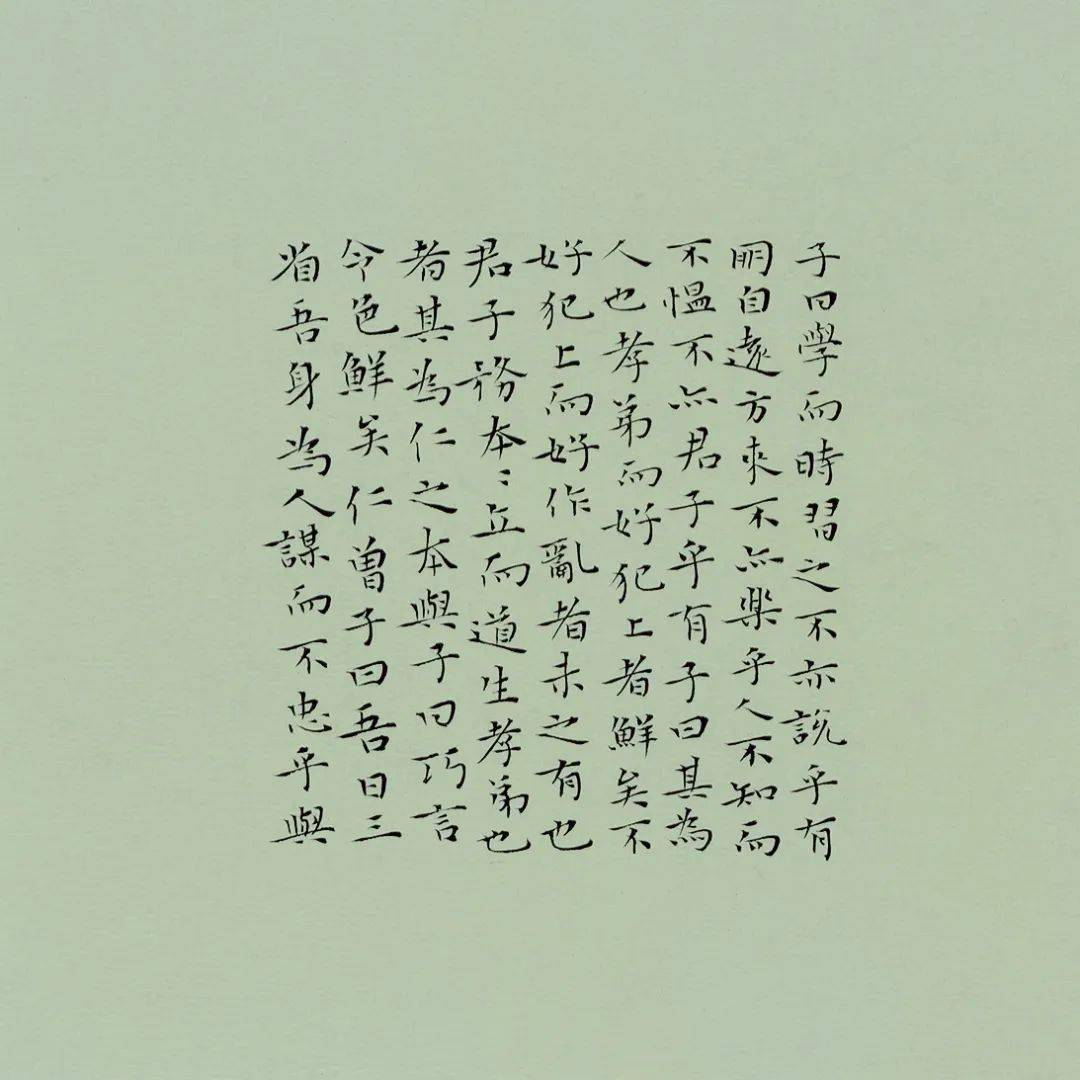 子曰學而時習之不亦說乎有
朋自遠方来不亦樂乎人不知而
不愠不亦君子乎有子曰其為
人也孝弟而好犯上者鮮矣不
好犯上而好作亂者未之有也
君子務本〻立而道生孝弟也
者其為仁之本與子曰巧言
令色鮮矣仁曾子曰吾日三
省吾身為人謀而不忠乎與